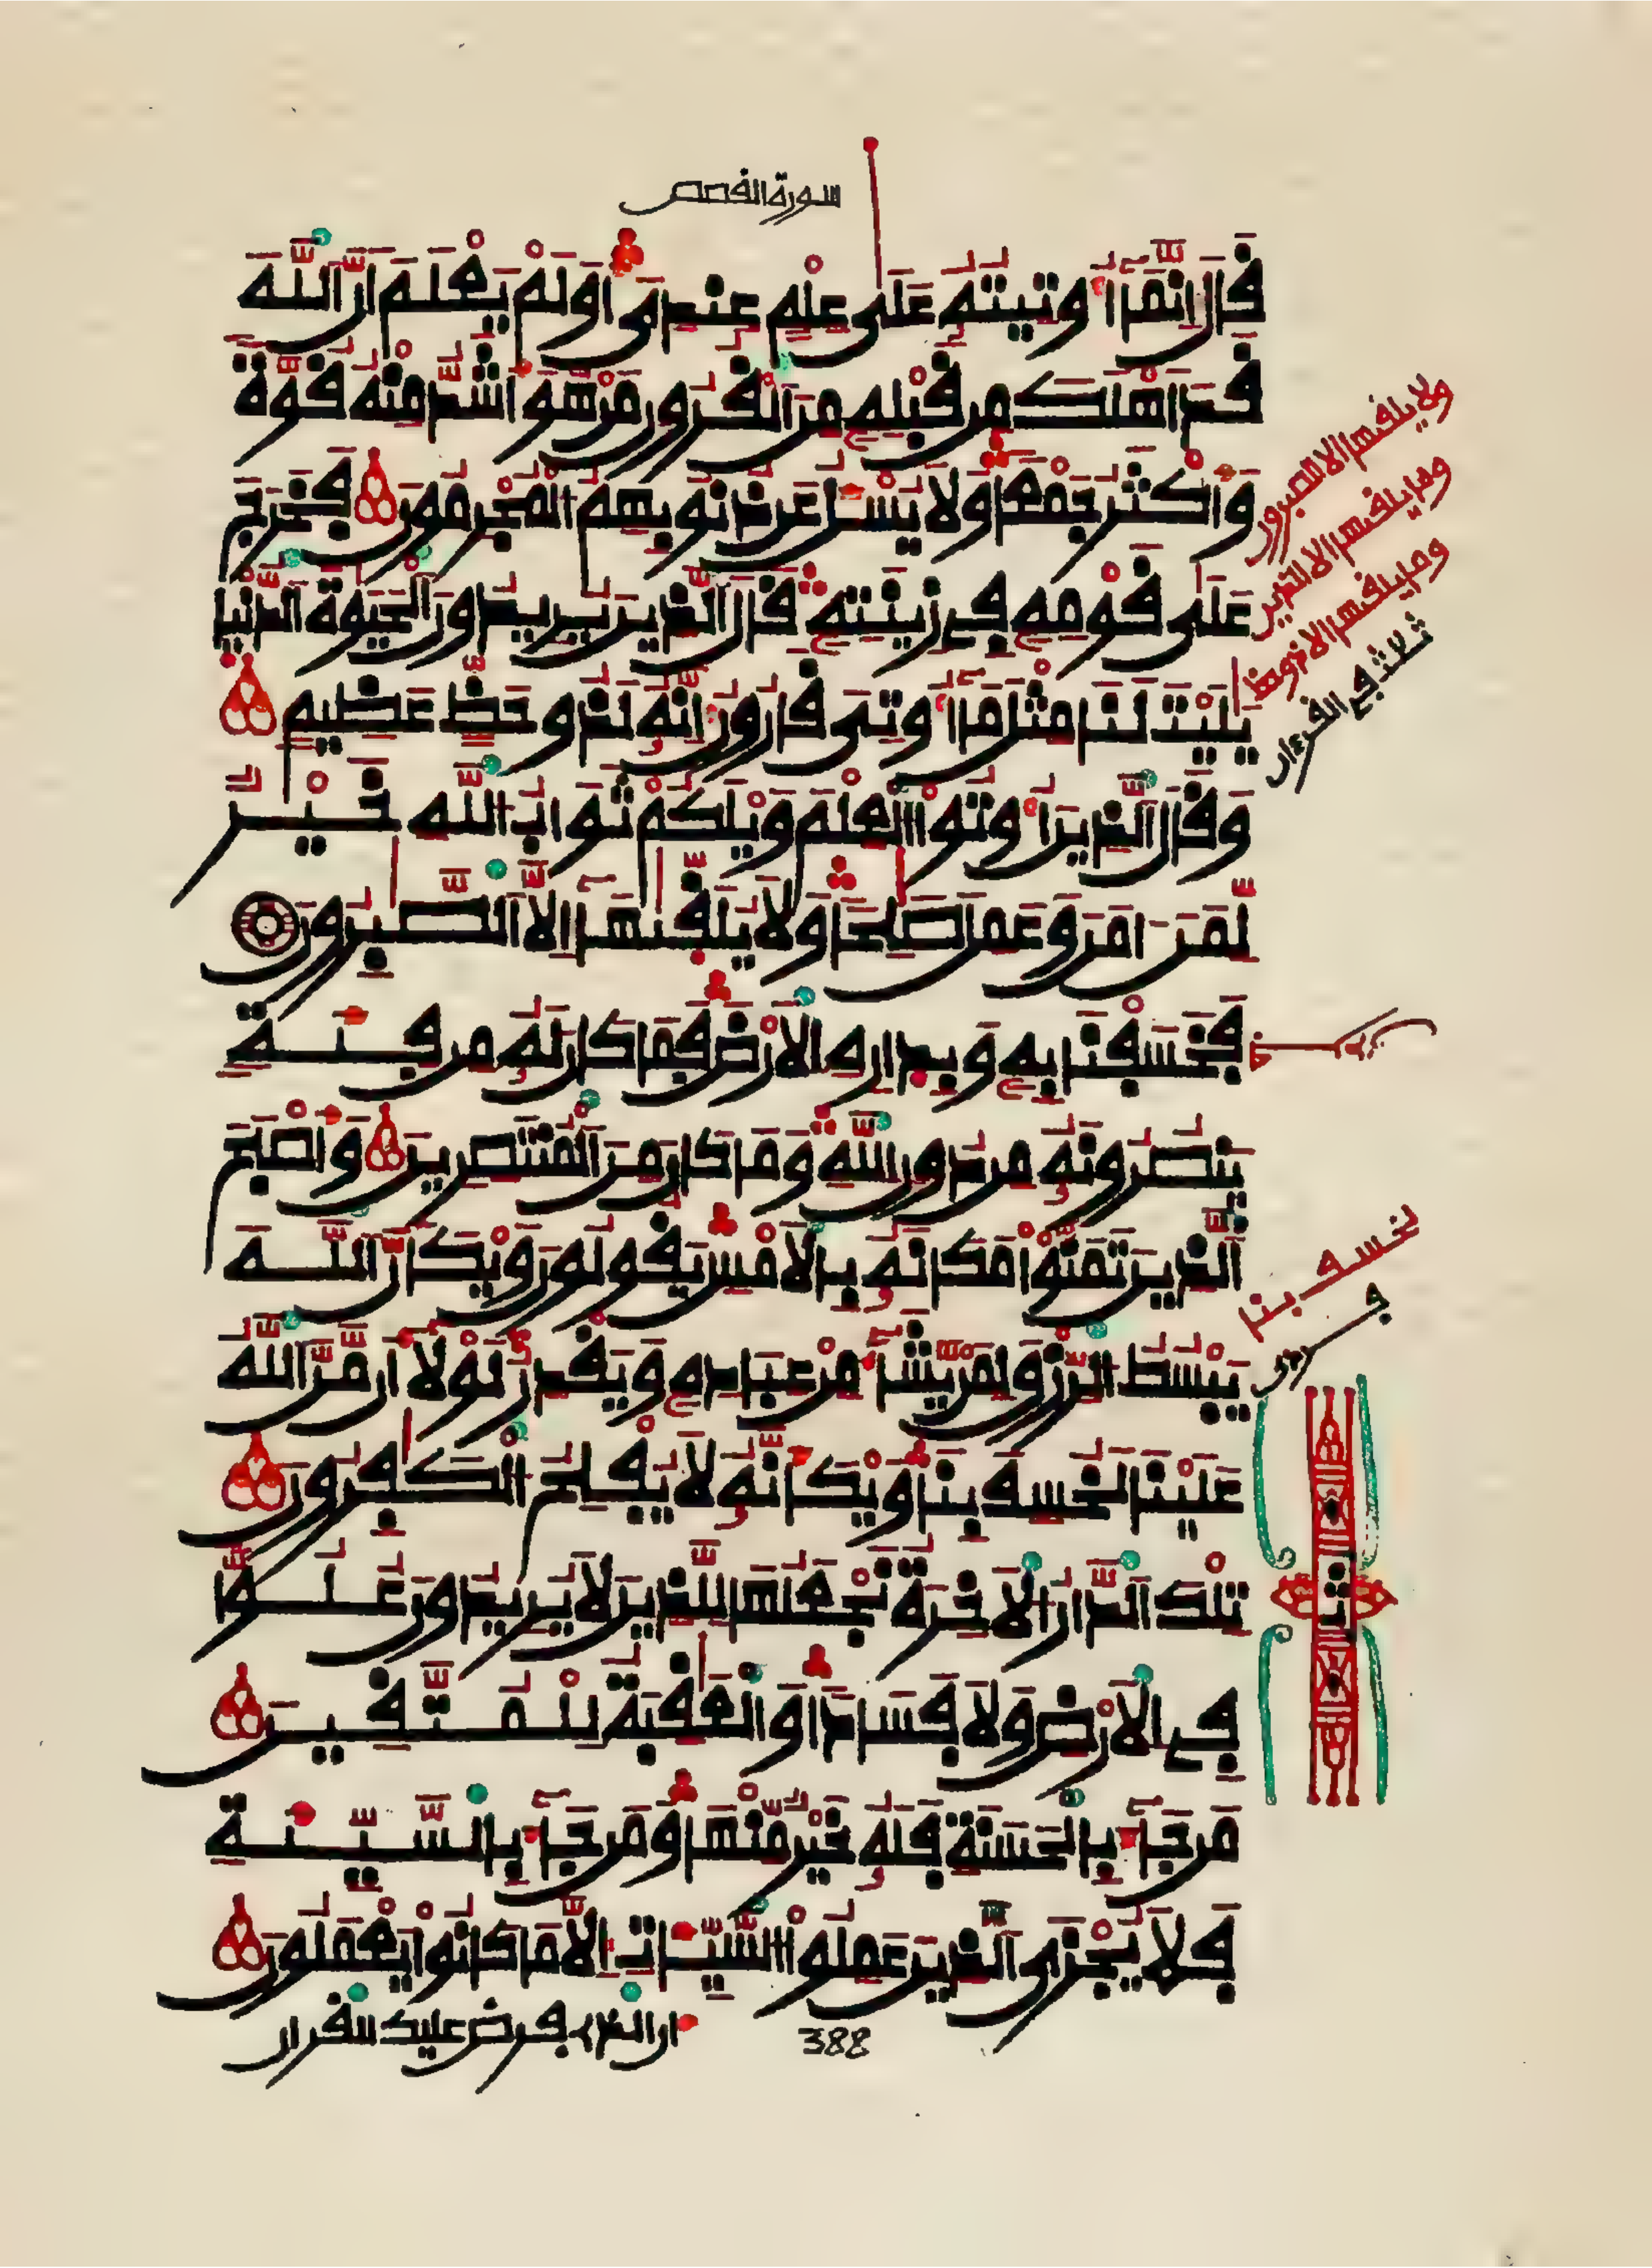 سورة القصص
قَالَ إِنَّمَا أُوتِيتُهُ عَلَىٰ عِلْمٍ عِندِي أَوَلَمْ يَعْلَمْ أَنَّ اللَّهَ
قَدْ أَهْلَكَ مِن قَبْلِهِ مِنَ الْقُرُونِ مَنْ هُوَ أَشَدُّ مِنْهُ قُوَّةً
وَأَكْثَرُ جَمْعًا وَلَا يُسْـَٔلُ عَن ذُنُوبِهِمُ الْمُجْرِمُونَ فَخَرَجَ
عَلَىٰ قَوْمِهِ فِي زِينَتِهِ قَالَ الَّذِينَ يُرِيدُونَ الْحَيَوٰةَ الدُّنْيَا
يَٰلَيْتَ لَنَا مِثْلَ مَا أُوتِيَ قَٰرُونُ إِنَّهُ لَذُو حَظٍّ عَظِيمٍ
وَقَالَ الَّذِينَ أُوتُوا الْعِلْمَ وَيْلَكُمْ ثَوَابُ اللَّهِ خَيْرٌ
لِّمَنْ ءَامَنَ وَعَمِلَ صَٰلِحًا وَلَا يُلَقَّىٰهَا إِلَّا الصَّٰبِرُونَ
فَخَسَفْنَا بِهِ وَبِدَارِهِ الْأَرْضَ فَمَا كَانَ لَهُ مِن فِئَةٍ
يَنصُرُونَهُ مِن دُونِ اللَّهِ وَمَا كَانَ مِنَ الْمُنتَصِرِينَ وَأَصْبَحَ
الَّذِينَ تَمَنَّوْا مَكَانَهُ بِالْأَمْسِ يَقُولُونَ وَيْكَأَنَّ اللَّهَ
يَبْسُطُ الرِّزْقَ لِمَن يَشَآءُ مِنْ عِبَادِهِ وَيَقْدِرُ لَوْلَا أَن مَّنَّ اللَّهُ
عَلَيْنَا لَخُسِفَ بِنَا وَيْكَأَنَّهُ لَا يُفْلِحُ الْكَٰفِرُونَ
تِلْكَ الدَّارُ الْأَخِرَةُ نَجْعَلُهَا لِلَّذِينَ لَا يُرِيدُونَ عُلُوًّا
فِي الْأَرْضِ وَلَا فَسَادًا وَالْعَٰقِبَةُ لِلْمُتَّقِينَ
مَن جَآءَ بِالْحَسَنَةِ فَلَهُ خَيْرٌ مِّنْهَا وَمَن جَآءَ بِالسَّيِّئَةِ
فَلَا يُجْزَى الَّذِينَ عَمِلُوا السَّيِّـَٔاتِ إِلَّا مَا كَانُوا يَعْمَلُونَ
ان الذي فرض عليك القران
388
ولا يلقيها الا الصبرون
وما يلقيها الا الذين
وما يلقيها الا ذو حظ
ثلاث في القرءان
لخسف بنا
ثمن